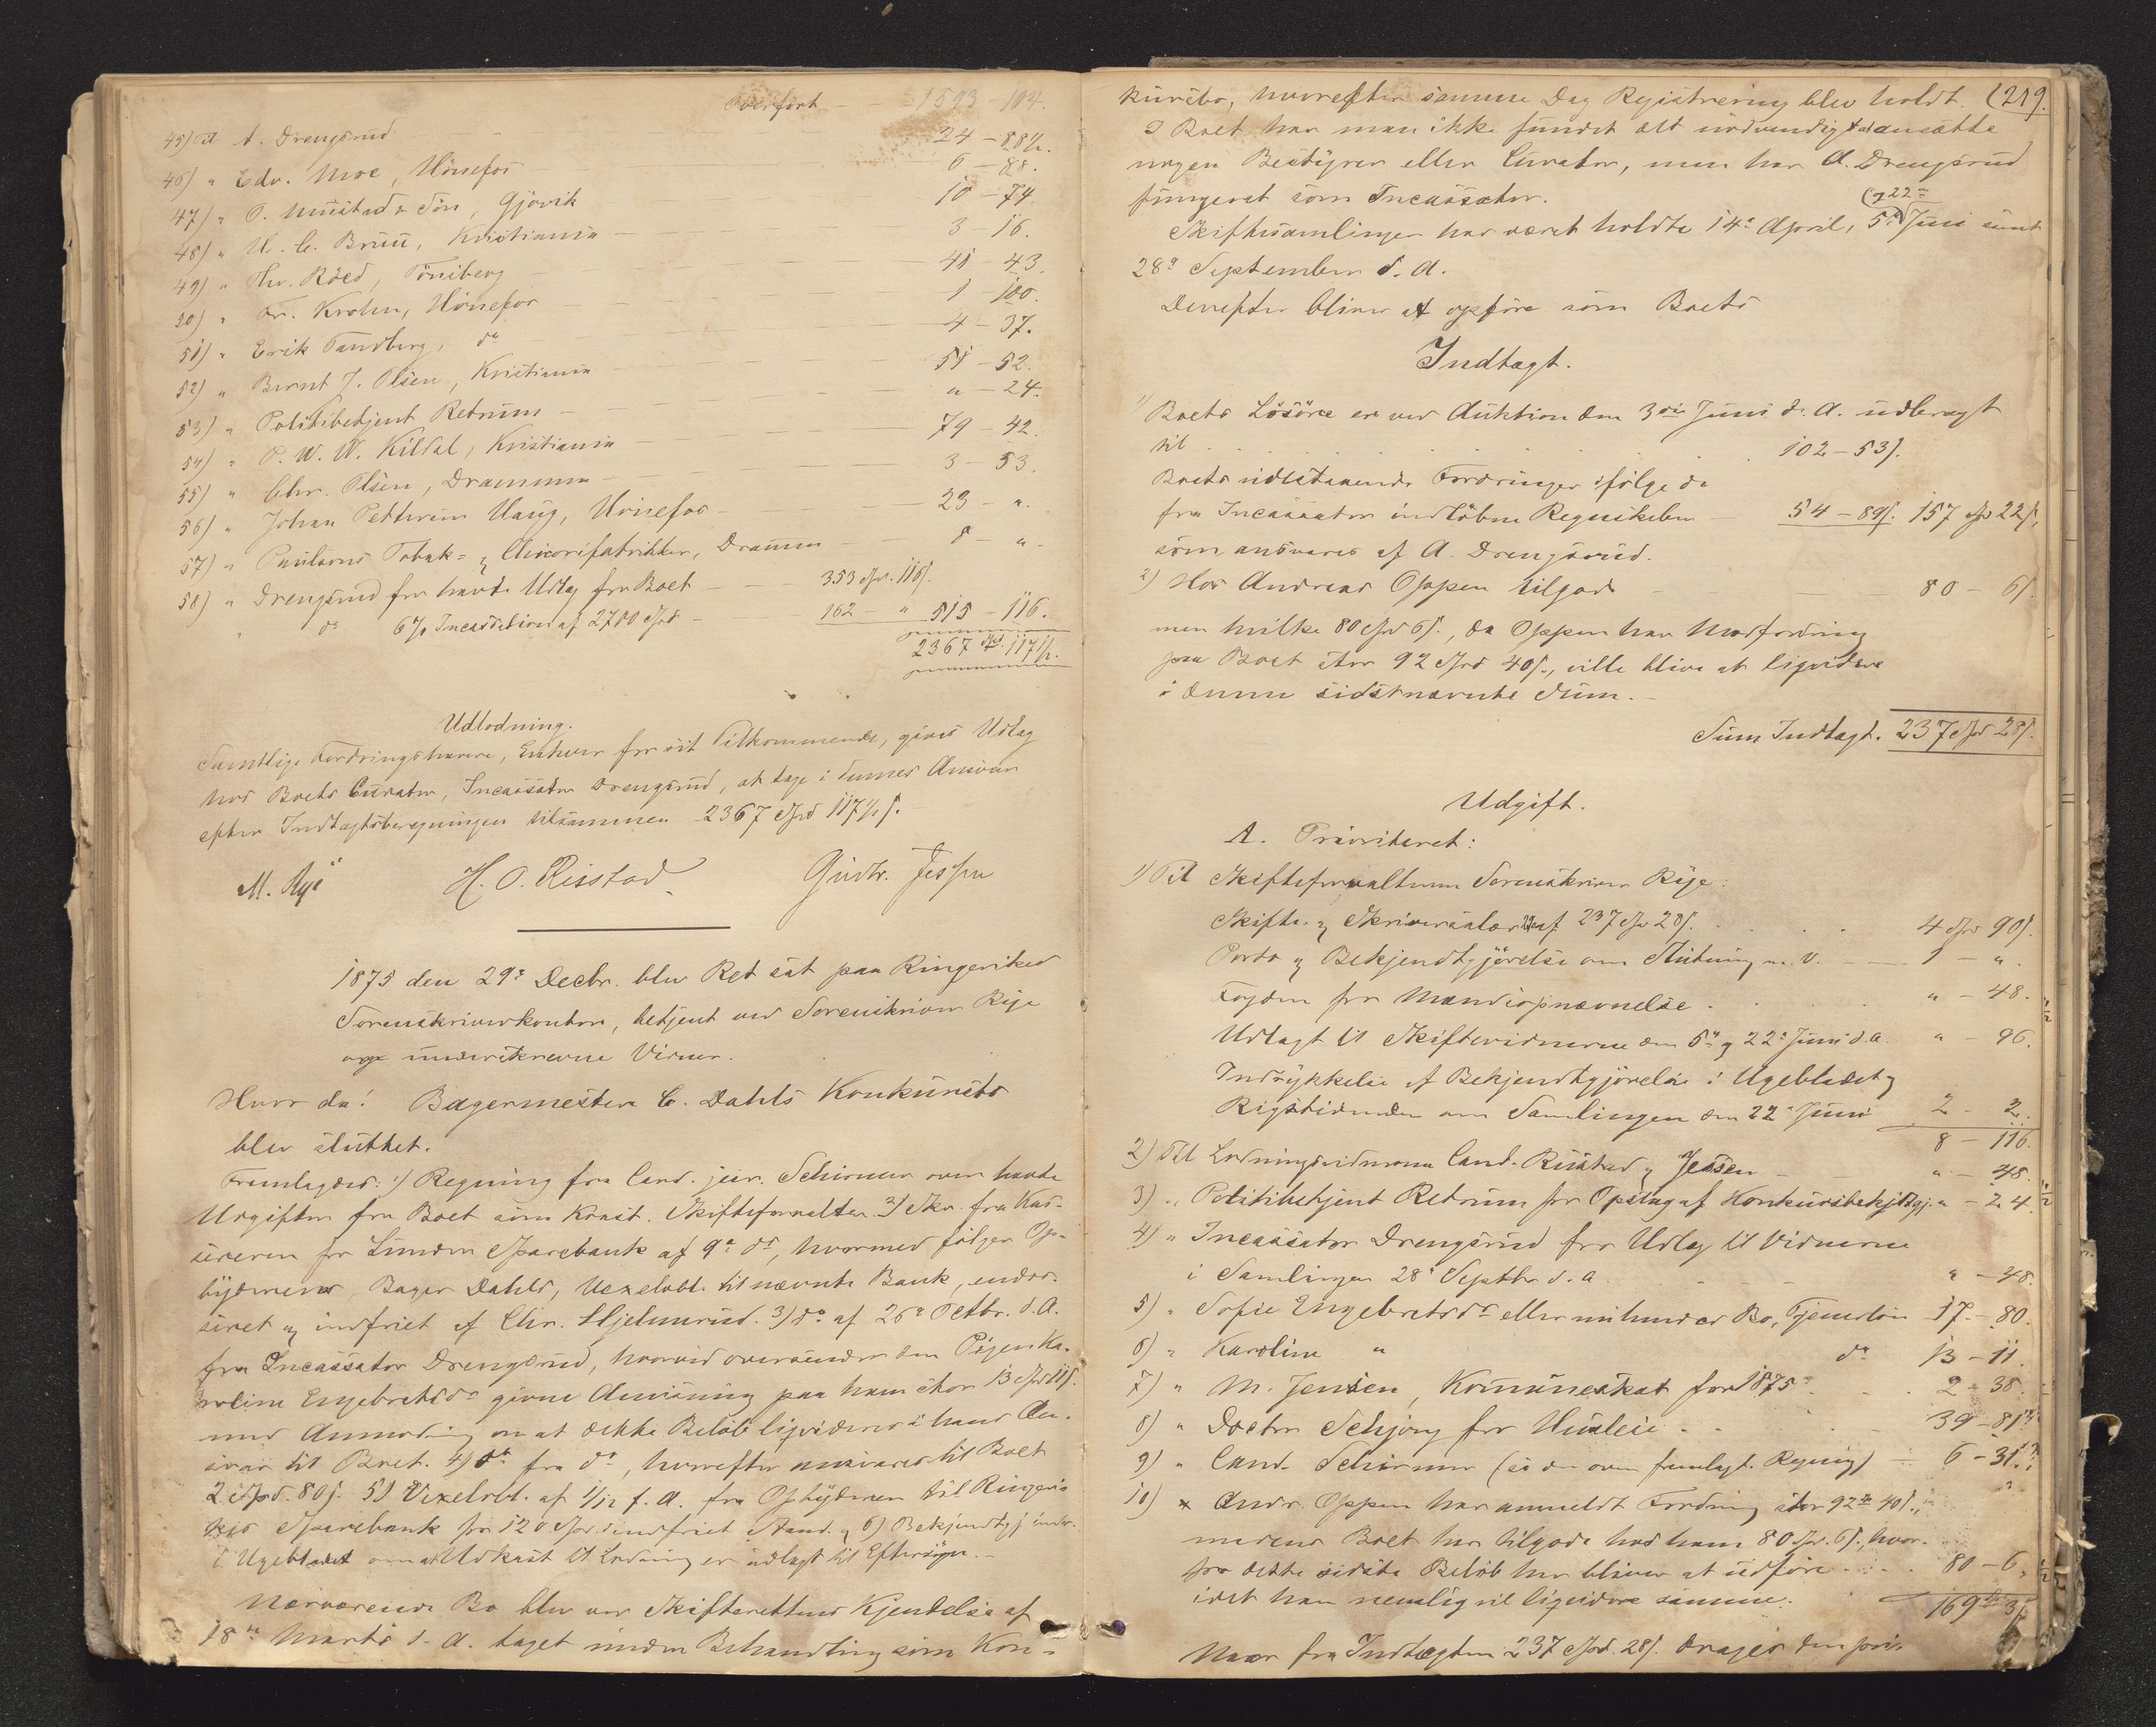 Overført — 1593 - 104.
45) Til A. Drengsrud — 24 - 88½.
46) " Edv. Moe, Hønefos — 6 - 88.
47) " O. Mustad & Søn, Gjøvik — 10 - 74.
48) " H. C. Bruu, Kristiania — 3 - 16.
49) " Hr. Röed, Tønsberg — 41 - 43.
50) " Fr. Krohn, Hönefos — 1 - 100.
51) " Erik Sandberg, do — 4 - 37.
52) " Bernt J. Olsen, Kristiania — 51 - 52.
53) " Politibetjent Retrum — " - 24.
54) " P. W. W. Kildal, Kristiania — 79 - 42.
55) " Chr. Olsen, Drammen — 3 - 53.
56) " Johan Petterson Haug, Hönefos — 23 - ".
57) " Paulsens Tobak- og Chicorifabrikker, Drammen — 8 - ".
58) " Drengsrud for havte Udlæg for Boet — 353 Spd. 116 s.
" do 6% Incassation af 2700 Spd — 162 - " 515 - 116.
2367 Spd. 117½.
Udlodning.
Samtlige Fordringshavere, Enhver for sit Tilkommende, gives Udlæg
hos Boets Curator, Incassator Drengsrud, at tage i dennes Ansvar
efter Indtægtsberegningen tilsammen 2367 Spd 117½ s.
M. Rye H. O. Risstad Gudbr. Jessen
1875 den 29de Decbr. blev Ret sat paa Ringerikes
Sorenskriverkontor, betjent ved Sorenskriver Rye
og underskrevne Vidner.
Hvor da: Bagermester C. Dahls Konkursbo
blev sluttet.
Fremlagdes: 1) Regning fra Cand. jur. Schirmer over havte
Udgifter for Boet som Konst. Skifteforvalter. 2) Skr. fra Kas-
sereren for Lunder Sparebank af 9de ds, hvormed følger Op-
bydernes, Bager Dahls, Vexelobl. til nævnte Bank, endos-
seret og indfriet af Chr. Hjelmerud. 3) do af 26de Octbr. d. A.
fra Incassator Drengsrud, hvorved oversendes den Pigen Ka-
roline Engebretsdr givne Anvisning paa ham stor 13 Spd 11 s.
med Anmodning om at dette Beløb ligvideres i hans An-
svar til Boet. 4) do fra do, hvorefter ansvares til Boet
2 Spd. 80 s. 5) Vexelobl. af 1/12 f. A. fra Opbyderen til Ringeri-
kes Sparebank for 120 Spd. indfriet Stand. og 6) Bekjendtgj. inds.
i Ugebladet om at Udkast til Lodning er udlagt til Eftersyn.
Nærværende Bo blev ved Skifterettens Kjendelse af
18de Marts d. A. taget under Behandling som Kon-
kursbo, hvorefter samme Dag Registrering blev holdt. (219.
I Boet har man ikke fundet det nødvendigt at ansætte
nogen Bestyrer eller Curator, men har A. Drengsrud
fungeret som Incassator.
Skiftesamlinger har været holdte 14de April, 5te og 22de Juni samt
28de September d. A.
Derefter bliver at opføre som Boets
Indtægt.
1) Boets Løsøre er ved Auktion den 3die Juni d. A. udbragt
til . . . 102 - 53 s.
Boets udestaaende Fordringer ifølge de
fra Incassator indløbne Regnskaber — 54 - 89 s. 157 Spd 22 s.
som ansvares af A. Drengsrud.
2) Hos Andreas Oppen tilgode — 80 - 6 s.
men hvilke 80 Spd 6 s., da Oppen har Modfordring
paa Boet stor 92 Spd 40 s., ville blive at ligvidere
i denne sidstnævnte Sum.
Sum Indtægt. 237 Spd 28 s.
Udgift.
A. Prioriteret:
1) Til Skifteforvalteren Sorenskriver Rye:
Skifte- og Skriversalær af 237 Spd 28 s. . . 4 Spd 90 s.
Porto og Bekjendtgjørelse om Slutning m. v. — 1 - ".
Fogden for Mændsopnævnelse . . " - 48.
Udlagt til Skiftevidnerne den 5te og 22de Juni d. A. " - 96.
Indrykkelse af Bekjendtgjørelse i Ugebladet og
Rigstidenden om Samlingen den 22de Juni 2 - 2.
8 - 116.
2) Til Lodningsvidnerne Cand. Risstad og Jessen — " - 48.
3) " Politibetjent Retrum for Opslag af Konkursbekjdtgj. " - 24.
4) " Incassator Drengsrud for Udlæg til Vidnerne
i Samlingen 28de Septbr d. A. — " - 48.
5) " Sofie Engebretsdr eller nu hendes Bo, Tjenerløn 17 - 80.
6) " Karoline " do 13 - 11.
7) " M. Jensen, Kommuneskat for 1875 . . 2 - 38.
8) " Doctor Schjøng for Husleie . . 39 - 81
9) " Cand. Schirmer (se den oven fremlagt. Regning) — 6 - 31.
10) " Andr. Oppen har anmeldt Fordring stor 92 Spd 40 s.,
medens Boet har tilgode hos ham 80 Spd. 6 s., hvor-
for dette sidste Beløb her bliver at udføre . . . 80 - 6,
idet han nemlig vil ligvidere samme.
169 Spd 3 s.
Naar fra Indtægten 237 Spd. 28 s. drages den pri-